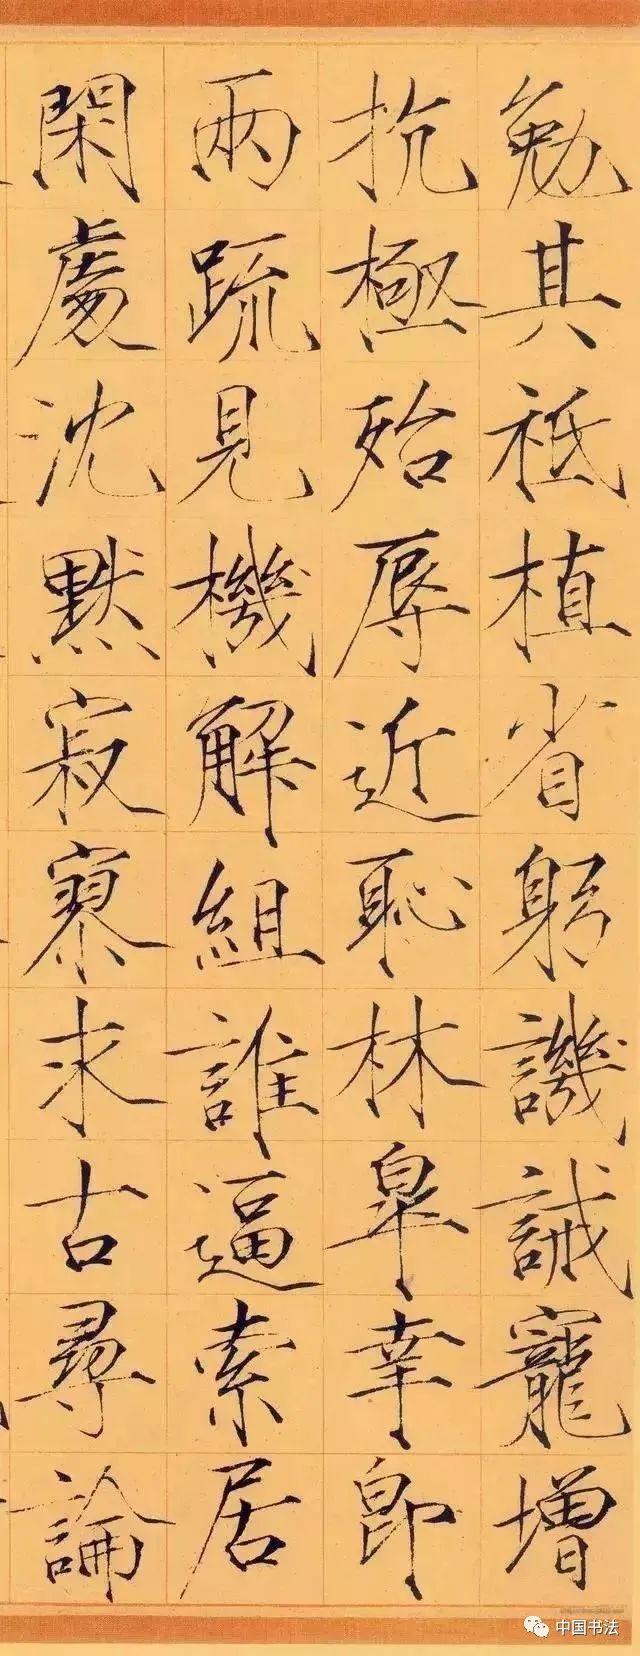 勉其祗植省躬譏誡寵增
抗極殆辱近恥林皋幸即
兩疏見機解組誰逼索居
閑處沈默寂寥求古尋論
中国书法